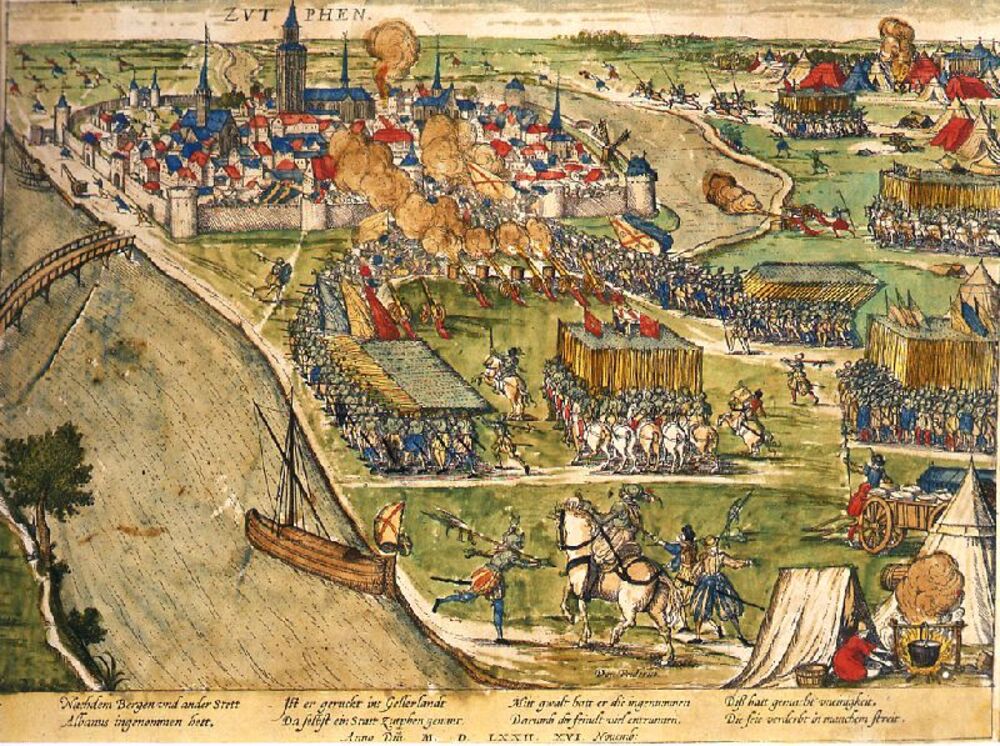 ZVTPHEN.
Don Frederick
Nachdem Bergen vnd ander Stett
Albanus ingenommen hett,
Ist er geruckt ins Gellerlandt
Da selbst ein Statt Zutphen genant.
Mitt gwalt hatt er die ingenummen
Darumb die feindt viel entrunnen.
Deß hatt gemacht vneinigkeit.
Die seie verderbt in manchem streit.
Anno Dñi M. D. LXXII. XVI. Novemb: